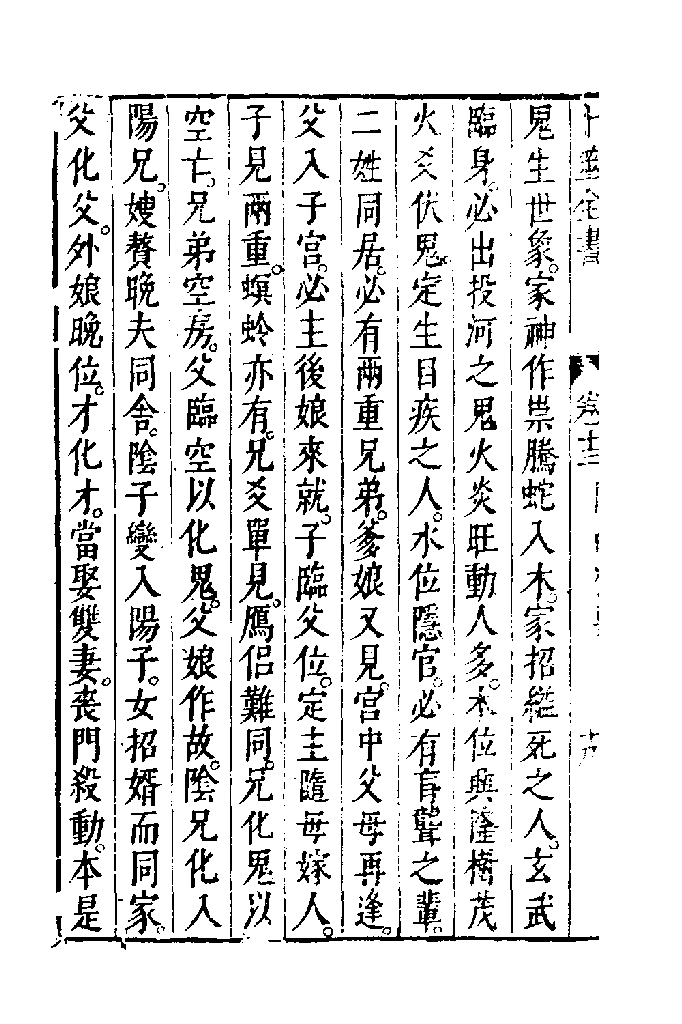 筮全書
鬼生世象。家神作祟騰蛇入木。家招縊死之人。玄武
臨身。必出投河之鬼火炎旺動人多。木位興隆樹茂
火爻伏鬼。定生目疾之人。水位隱官。必有盲聾之輩。
二姓同居。必有兩重兄弟。爹娘又見。宮中父母再逢。
父入子宮。必主後娘來就。子臨父位。定主隨母嫁人。
子見兩重。螟蛉亦有。兄爻單見。鴈侶難同。兄化鬼以
空亡。兄弟空房。父臨空以化鬼。父娘作故。陰兄化入
陽兄。嫂贅晚夫同舍。陰子變入陽子。女招婿而同家。
父化父。外娘晚位。才化才。當娶雙妻。喪門殺動。本是